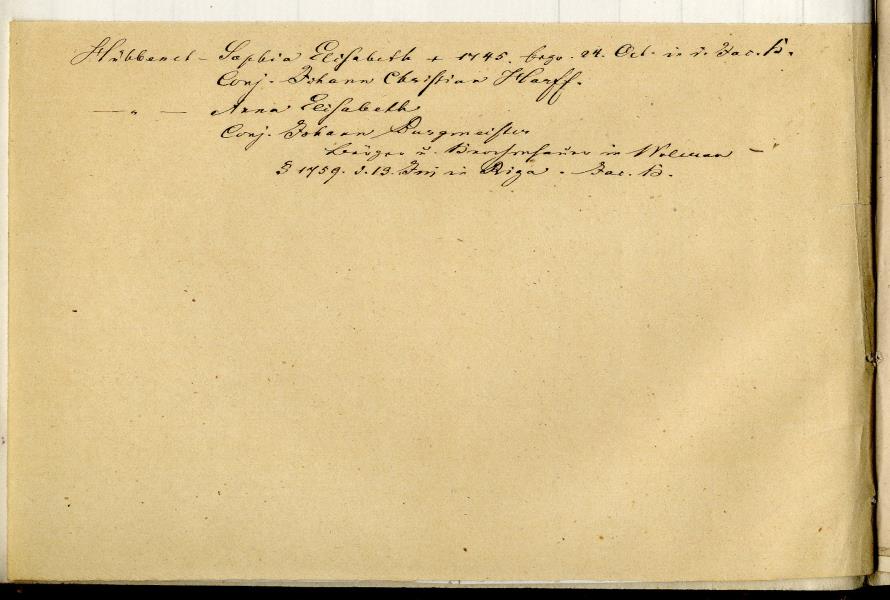 Hübbenet – Sophia Elisabeth + 1745. begr. 24. Oct. in d. Jac. K.
Conj. Johann Christian Harff.
— „ — Anna Elisabeth
Conj. Johann Burgmeister
Bürger u. in Wolmar –
1759. d. 13. in Riga. Jac. K.